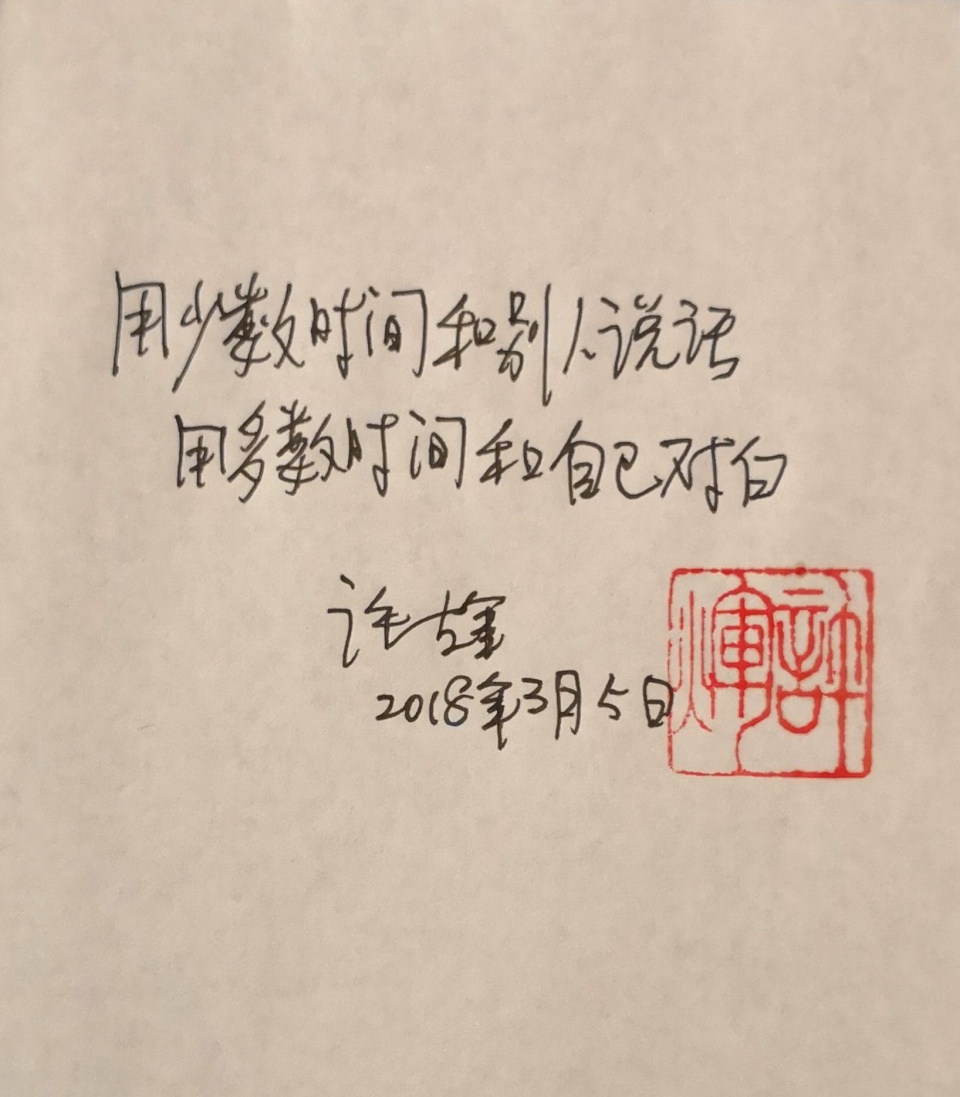 用少数时间和别人说话
用多数时间和自己对白
许
2018年3月5日
許
煇